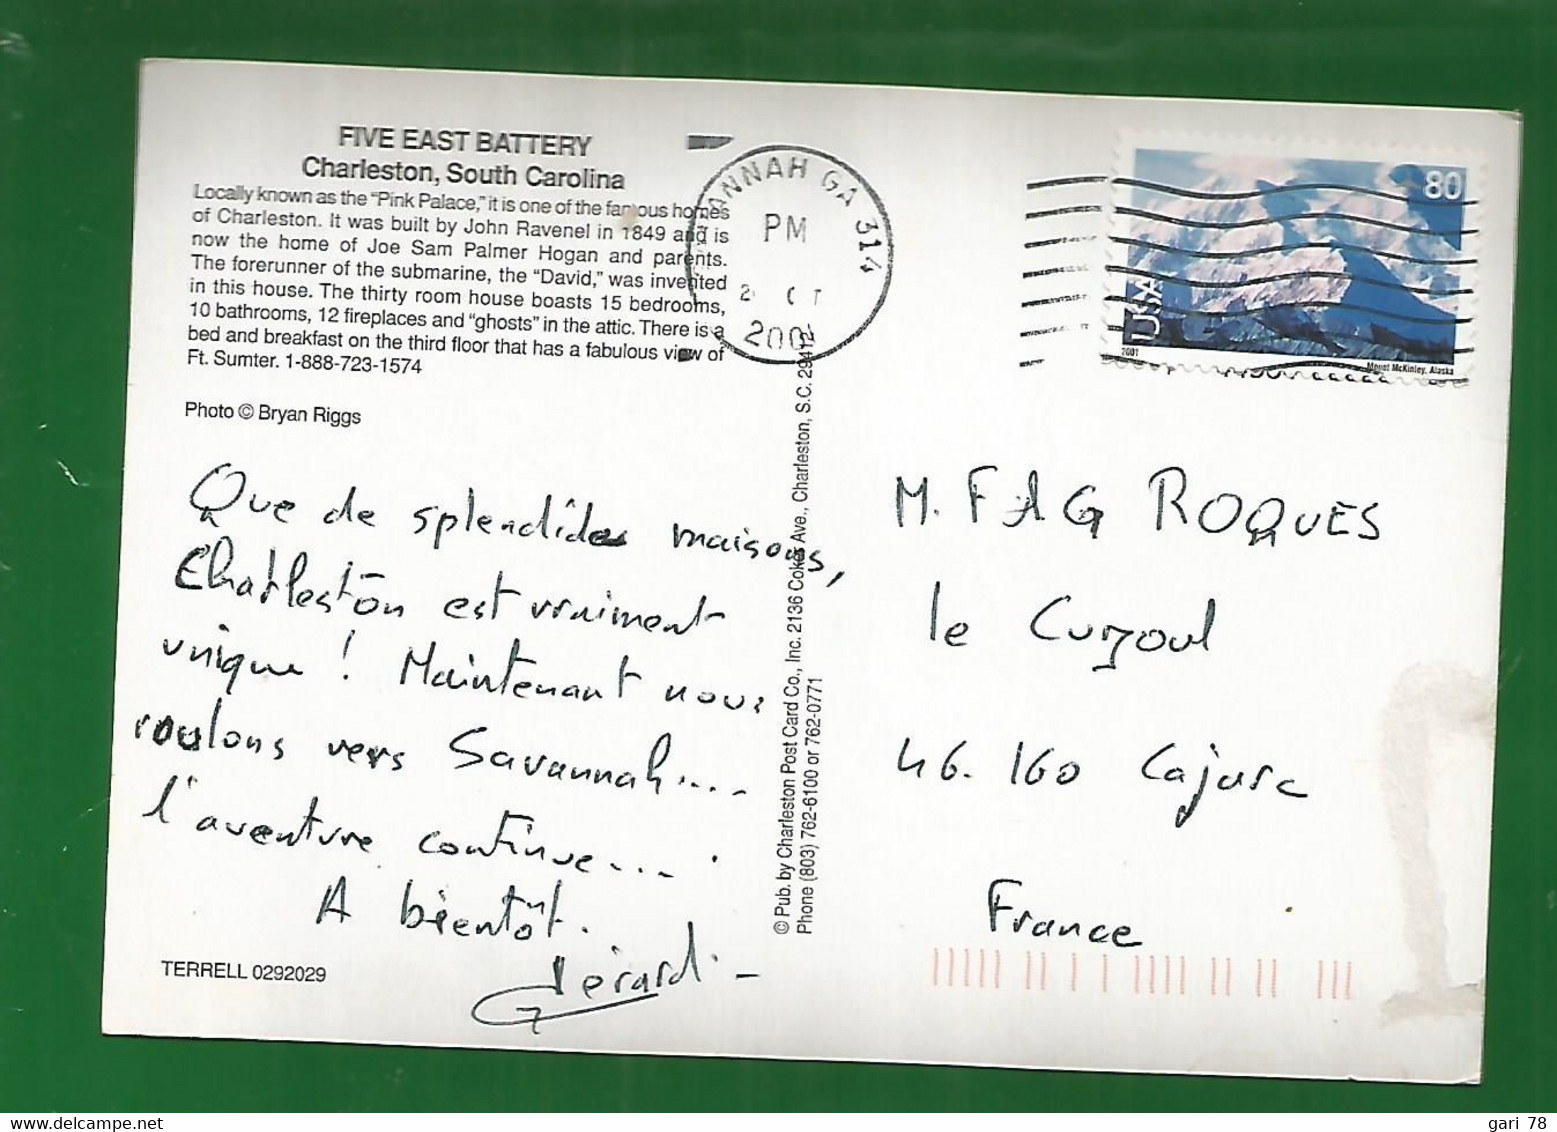 FIVE EAST BATTERY
Charleston, South Carolina
Locally known as the "Pink Palace," it is one of the famous homes
of Charleston. It was built by John Ravenel in 1849 and is
now the home of Joe Sam Palmer Hogan and parents.
The forerunner of the submarine, the "David," was invented
in this house. The thirty room house boasts 15 bedrooms,
10 bathrooms, 12 fireplaces and "ghosts" in the attic. There is a
bed and breakfast on the third floor that has a fabulous view of
Ft. Sumter. 1-888-723-1574
Photo © Bryan Riggs
Que de splendides maisons,
Charleston est vraiment
unique ! Maintenant nous
roulons vers Savannah....
l'aventure continue....
A bientôt.
Gérard
TERRELL 0292029
© Pub. by Charleston Post Card Co., Inc. 2136 Coker Ave., Charleston, S.C. 29412
Phone (803) 762-6100 or 762-0771
ANNAH GA 314
PM
200
80
USA
2001
Mount McKinley, Alaska
M. F A G ROQUES
le Cuzoul
46.160 Cajarc
France
gari 78